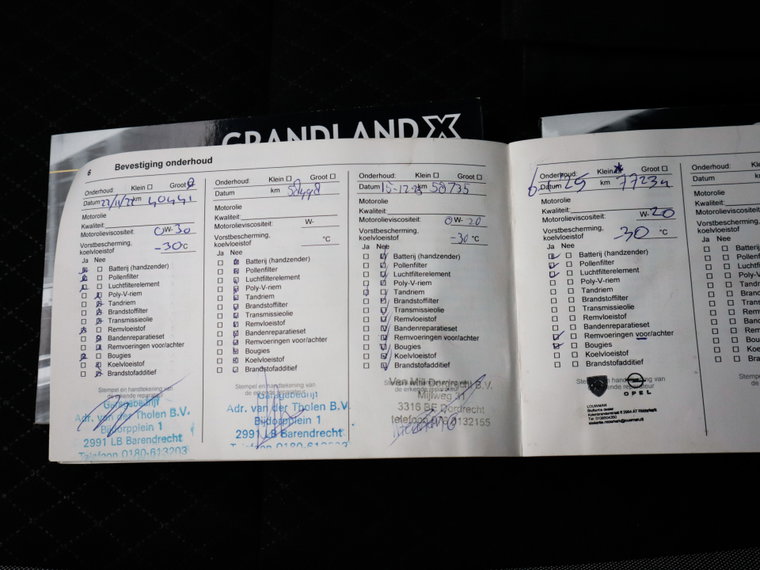 GRANDLAND X
6 Bevestiging onderhoud
Onderhoud: Klein Groot
Datum 22/11/21 km 40441
Motorolie
Kwaliteit:
Motorolieviscositeit: 0W-30
Vorstbescherming, koelvloeistof -30°C
Ja Nee
Batterij (handzender)
Pollenfilter
Luchtfilterelement
Poly-V-riem
Tandriem
Brandstoffilter
Transmissieolie
Remvloeistof
Bandenreparatieset
Remvoeringen voor/achter
Bougies
Koelvloeistof
Brandstofadditief
Stempel en handtekening van de erkende reparateur
Garagebedrijf
Adr. van der Tholen B.V.
Bijdorpplein 1
2991 LB Barendrecht
Telefoon 0180-613203
Onderhoud: Klein Groot
Datum km
Motorolie
Kwaliteit:
Motorolieviscositeit: W-
Vorstbescherming, koelvloeistof °C
Ja Nee
Batterij (handzender)
Pollenfilter
Luchtfilterelement
Poly-V-riem
Tandriem
Brandstoffilter
Transmissieolie
Remvloeistof
Bandenreparatieset
Remvoeringen voor/achter
Bougies
Koelvloeistof
Brandstofadditief
Stempel en handtekening van de erkende reparateur
Garagebedrijf
Adr. van der Tholen B.V.
Bijdorpplein 1
2991 LB Barendrecht
Telefoon 0180-613203
Onderhoud: Klein Groot
Datum 15-12-23 km 58735
Motorolie
Kwaliteit:
Motorolieviscositeit: 0W-20
Vorstbescherming, koelvloeistof -30°C
Ja Nee
Batterij (handzender)
Pollenfilter
Luchtfilterelement
Poly-V-riem
Tandriem
Brandstoffilter
Transmissieolie
Remvloeistof
Bandenreparatieset
Remvoeringen voor/achter
Bougies
Koelvloeistof
Brandstofadditief
Van Mill Dordrecht B.V.
Mijlweg 31
3316 BE Dordrecht
Onderhoud: Klein Groot
Datum km 77234
Motorolie
Kwaliteit:
Motorolieviscositeit: W-20
Vorstbescherming, koelvloeistof -30°C
Ja Nee
Batterij (handzender)
Pollenfilter
Luchtfilterelement
Poly-V-riem
Tandriem
Brandstoffilter
Transmissieolie
Remvloeistof
Bandenreparatieset
Remvoeringen voor/achter
Bougies
Koelvloeistof
Brandstofadditief
OPEL
Onderhoud:
Datum
Motorolie
Kwaliteit:
Ja Nee